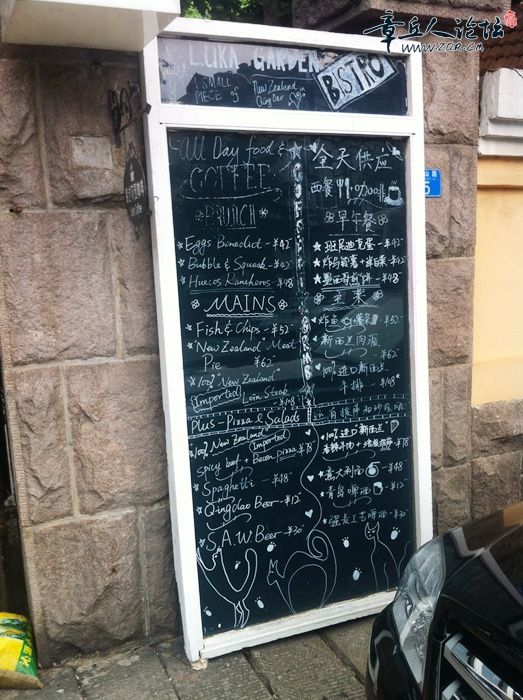 章丘人论坛
www.ZQR.CN
LUKA GARDEN
BISTRO
A SMALL PIECE of New Zealand in Qing Dao
All Day food &
COFFEE
BRUNCH
Eggs Benedict - ¥42
Bubble & Squeak - ¥42
Huecos Rancheros - ¥48
MAINS
Fish & Chips - ¥52
"New Zealand" Meat
Pie ¥62
100% "New Zealand"
(Imported) Loin Steak
- ¥108
Plus - Pizza & Salads
100% New Zealand (Imported)
spicy beef + Bacon pizza ¥78
Spaghetti - ¥48
Qingdao Beer - ¥12
S.A.W Beer - ¥30
全天供应
西餐 咖啡
早午餐
班尼迪克蛋 - ¥42
- ¥42
- ¥48
主菜
炸鱼 薯条 - ¥52
新西兰肉派
- ¥62
100% 进口新西兰
牛排 - ¥108
还有披萨和沙拉哦
100% 进口新西兰
¥78
意大利面 - ¥48
青岛啤酒 - ¥12
工艺啤酒 - ¥30
5